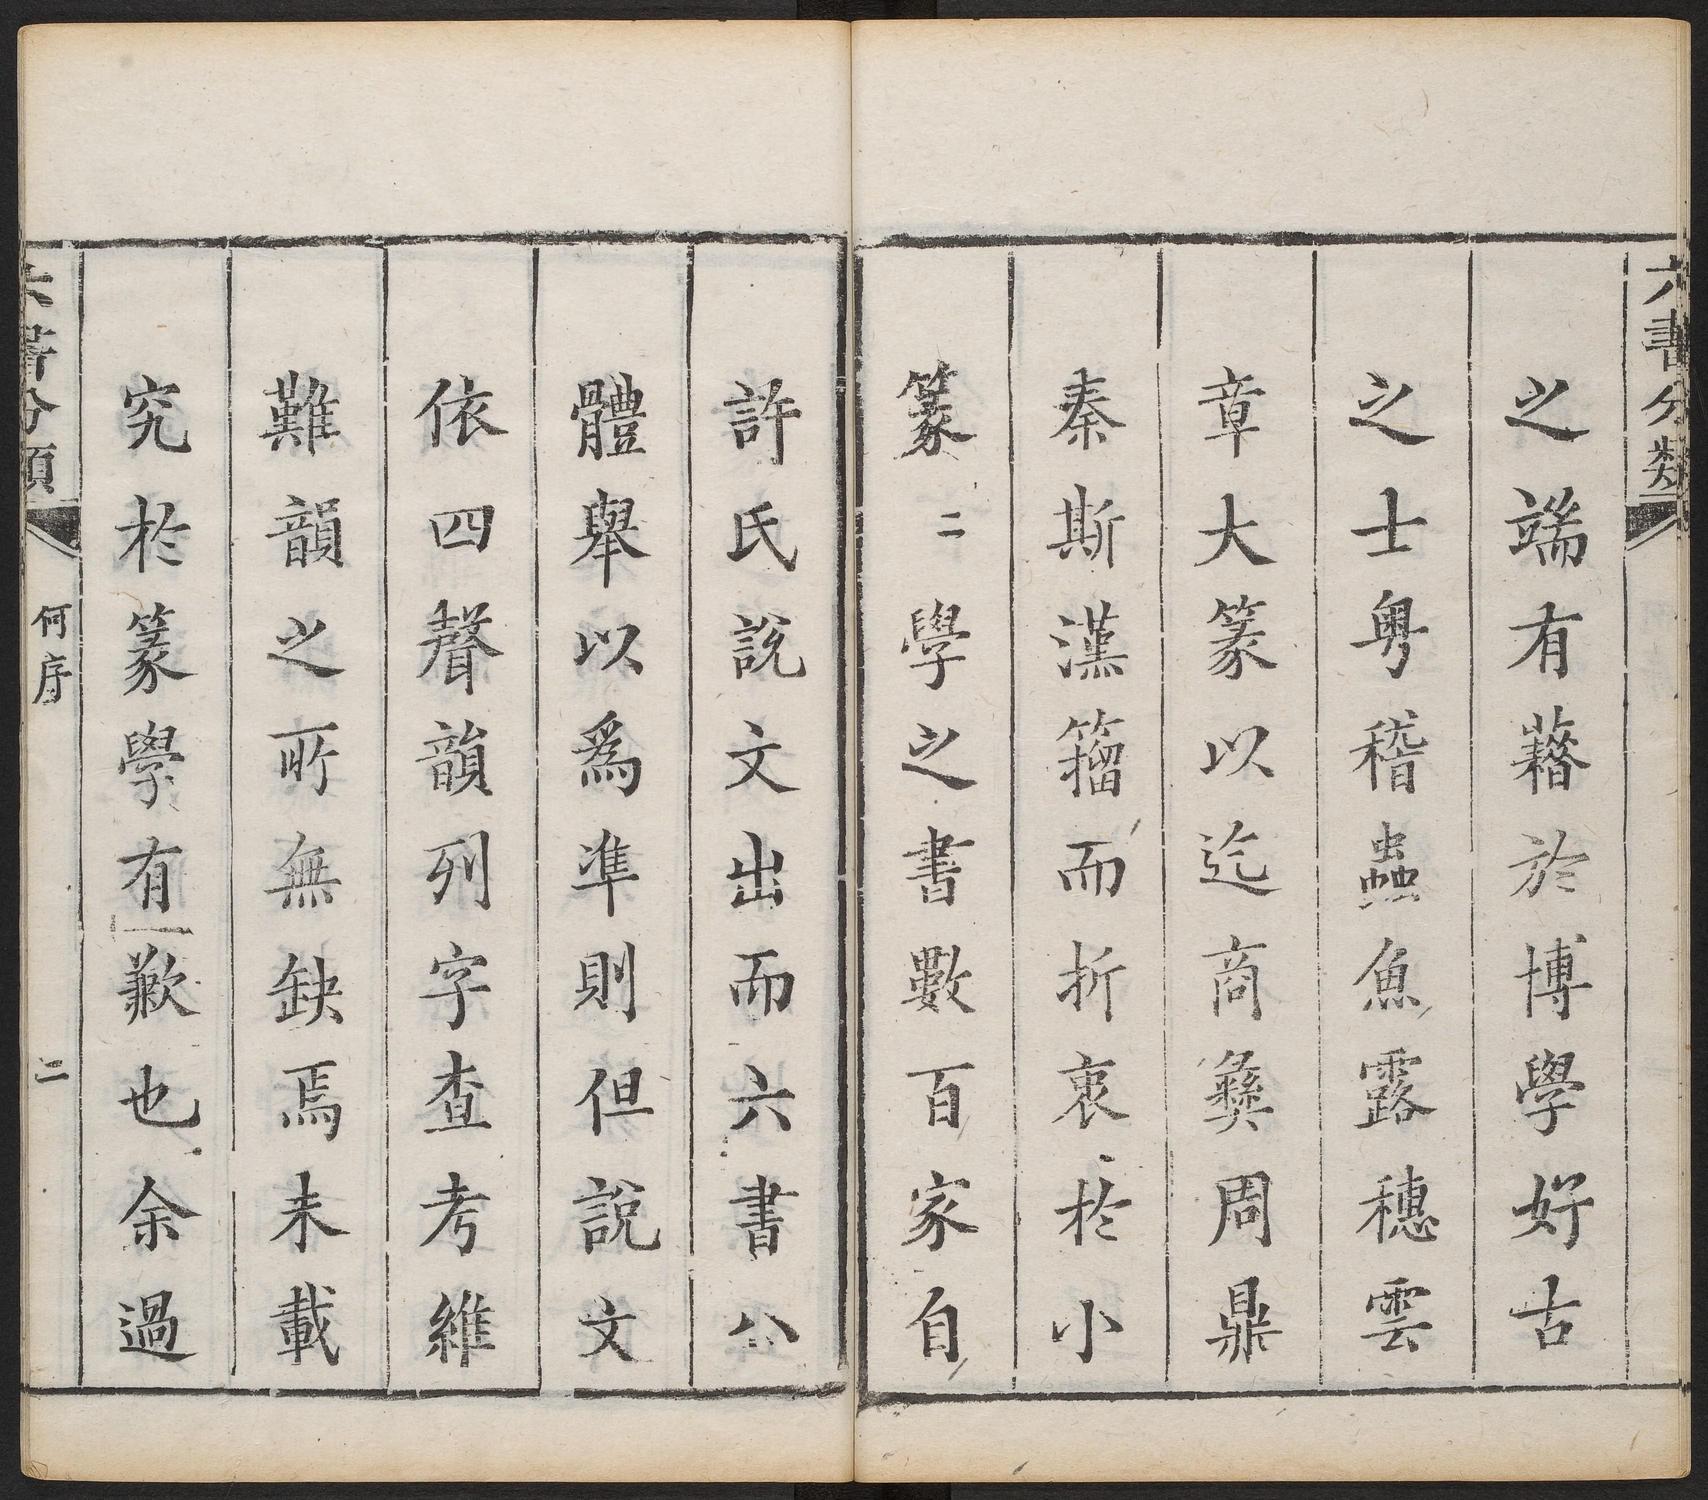 六書分類
之端有藉於博學好古
之士粤稽蟲魚露穗雲
章大篆以迄商彝周鼎
秦斯漢籀而折衷於小
篆二學之書數百家自
許氏說文出而六書八
體舉以爲準則但說文
依四聲韻列字查考維
難韻之所無缺焉未載
究於篆學有歉也余過
六書分類
何序
二